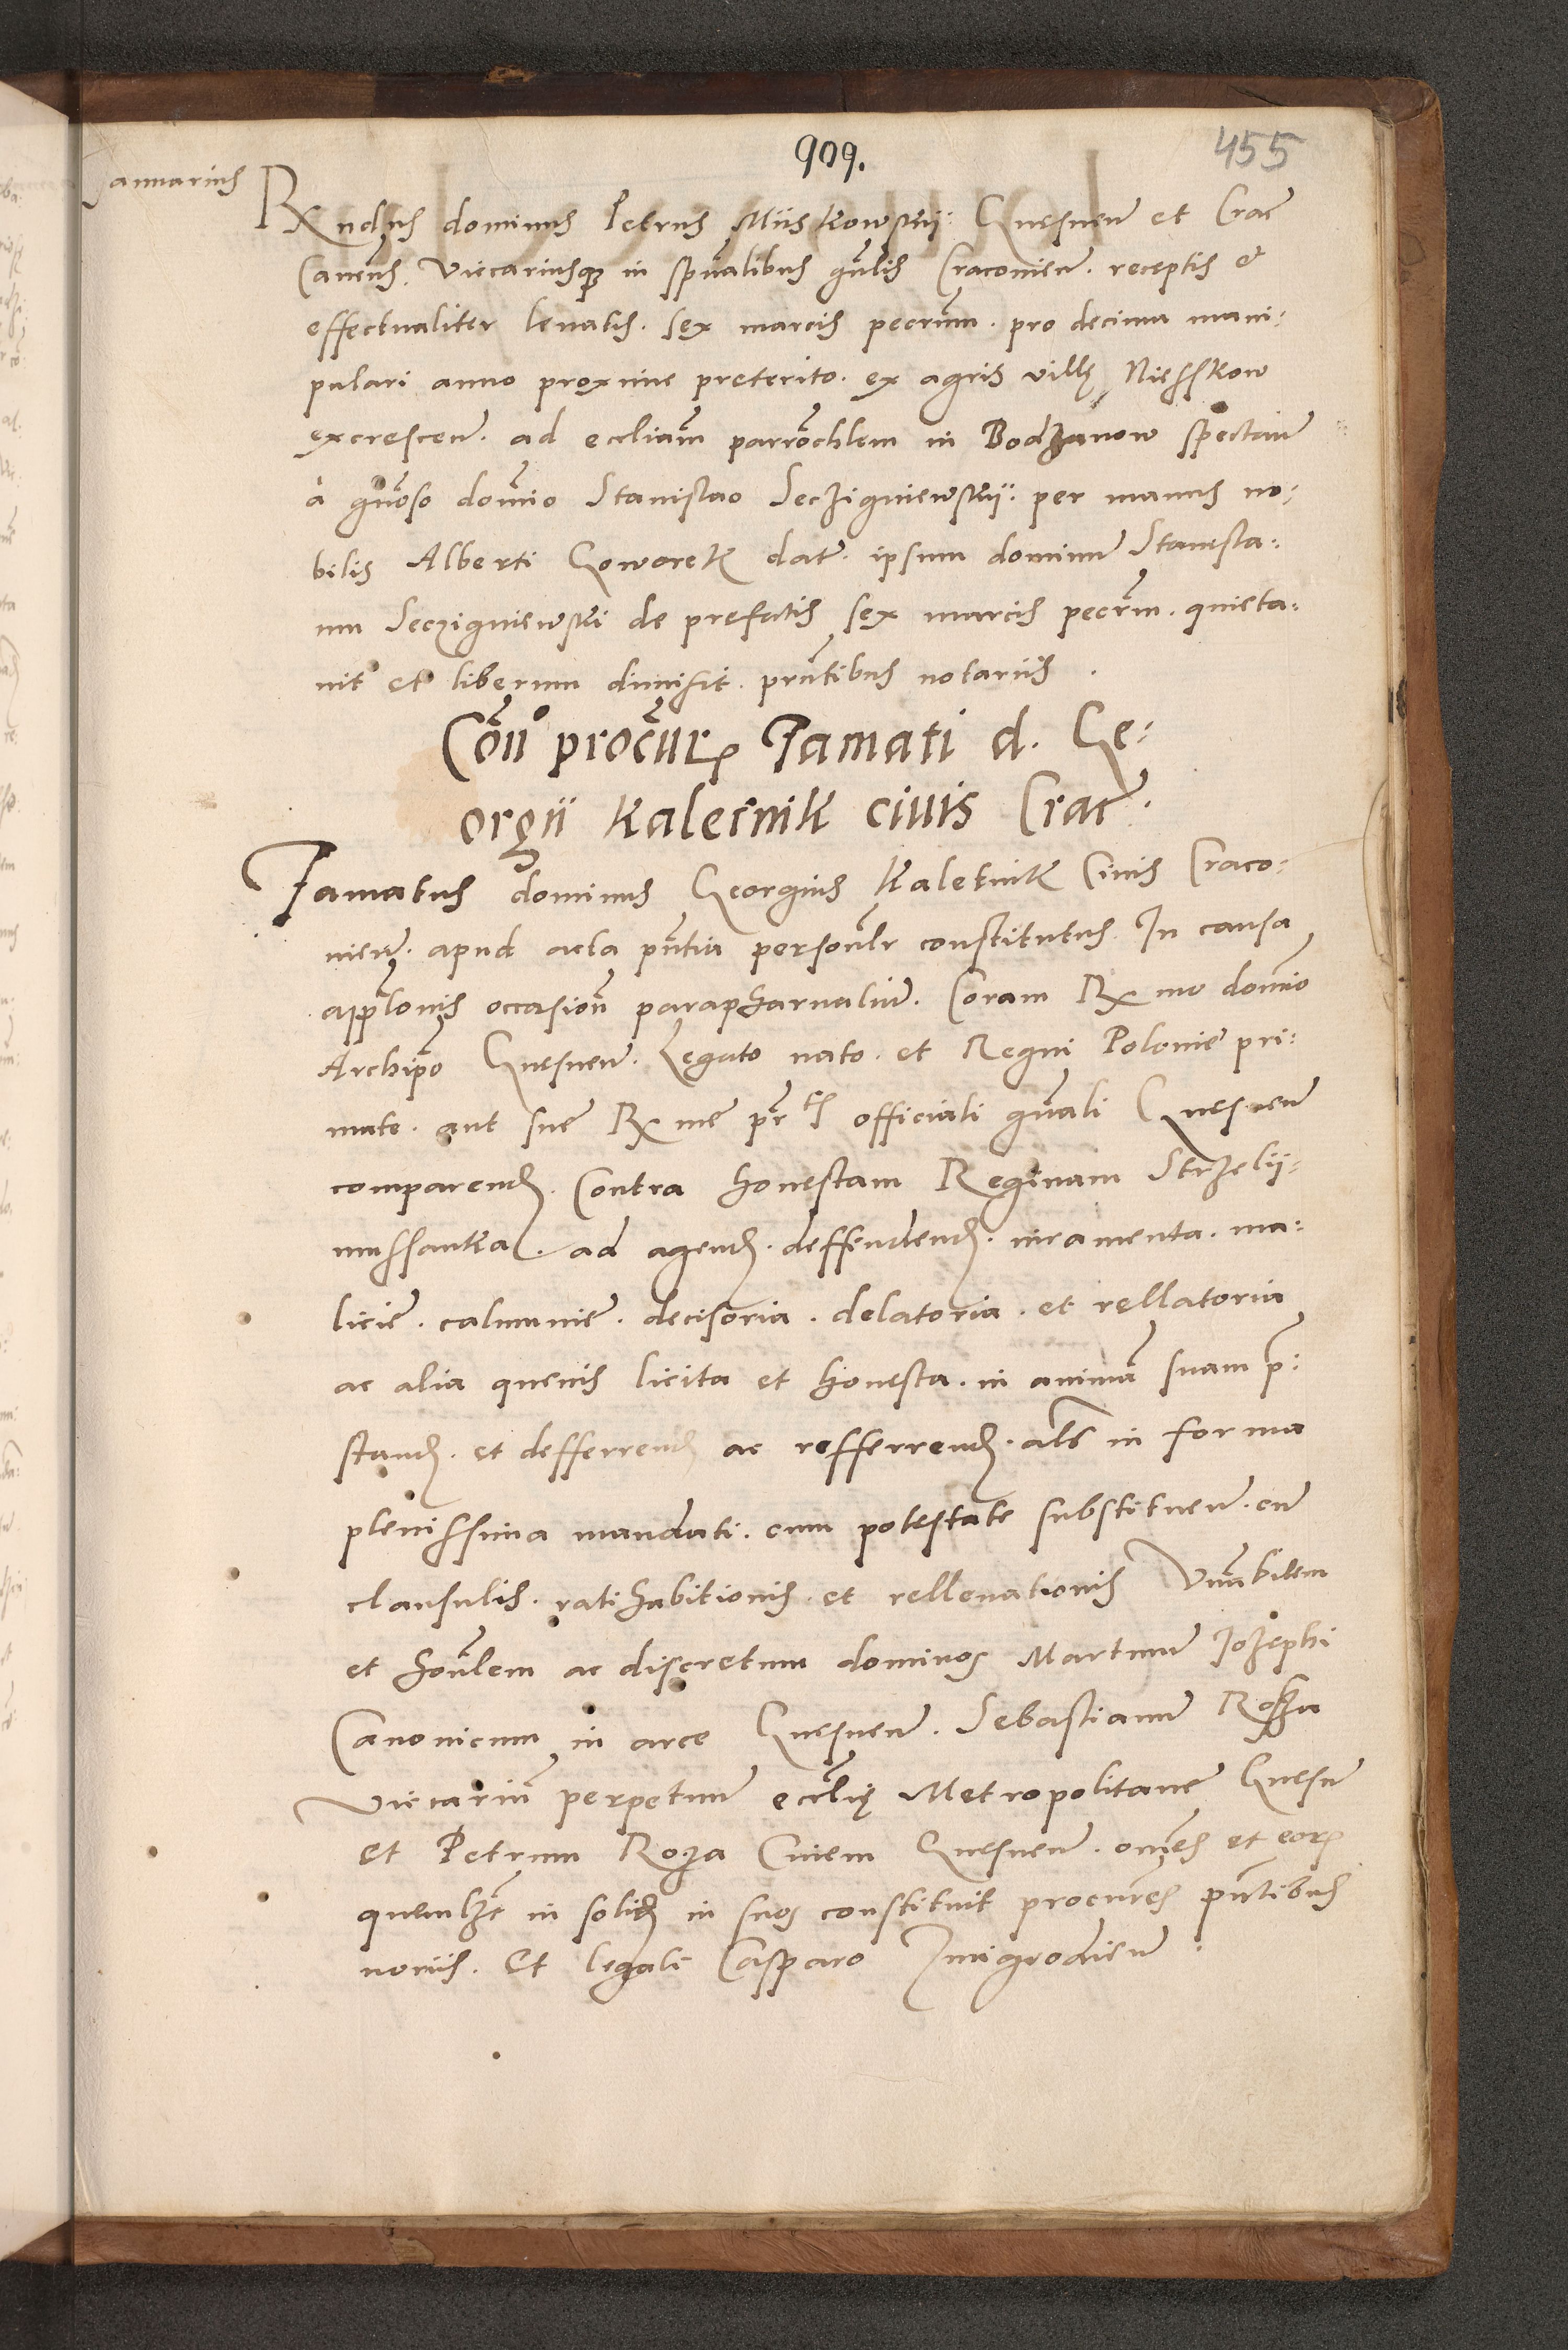 909.
455
Januarius
Rndus dominus Petrus Miiskowskii Gnesnen et Crac
Cancus. Viccariusq in spualibus gnlis Cracovien. receptis et
effectualiter leuatis. sex marcis pecrum. pro decima mani:
pulari anno proxime preterito. ex agris villę Niessskow
excrescen. ad eccliam parrochlem in Bodzanow spectan
a gnoso domino Stanislao Seczigniewskii. per manus no:
bilis Alberti Gowarek dat. ipsum dominum Stanisla:
um Seczigniewski de prefatis sex marcis pecrm. quieta:
uit et liberum dimisit. pntibus notariis.
Con procur Famati d. Ge:
orgii Kaletnik ciuis Crac.
Famatus dominus Georgius Kaletnik Ciuis Craco:
uien. apud acta pntia personlr constitutus. In causa
applonis occasione parapharnalium. Coram Rx mo domino
Archipo Gnesnen. Legato nato. et Regni Polonie pri:
mate. aut sue Rx me pr tis officiali gnali Gnesnen
comparend. Contra honestam Reginam Strzelij:
mussanka. ad agend. deffendend. iuramenta. ma:
licie. calumnie. decisoria. delatoria. et rellatoria
ac alia queuis licita et honesta. in animam suam p:
stand. et defferrend ac refferrend. als in forma
plenissima mandati. cum potestate substituen. cum
clausulis. ratihabitionis. et relleuationis Vnabilem
et honlem ac discretum dominos Martinum Jozephi
Canonicum in arce Gnesnen. Sebastianum Roza
Viccarium perpetuum ecclię Metropolitane Gnesn
et Petrum Roza Ciuem Gnesnen. omnes et eor
quemlzet in solid in suos constituit procures pntibus
noriis. Et legali Casparo Zmigrodien.